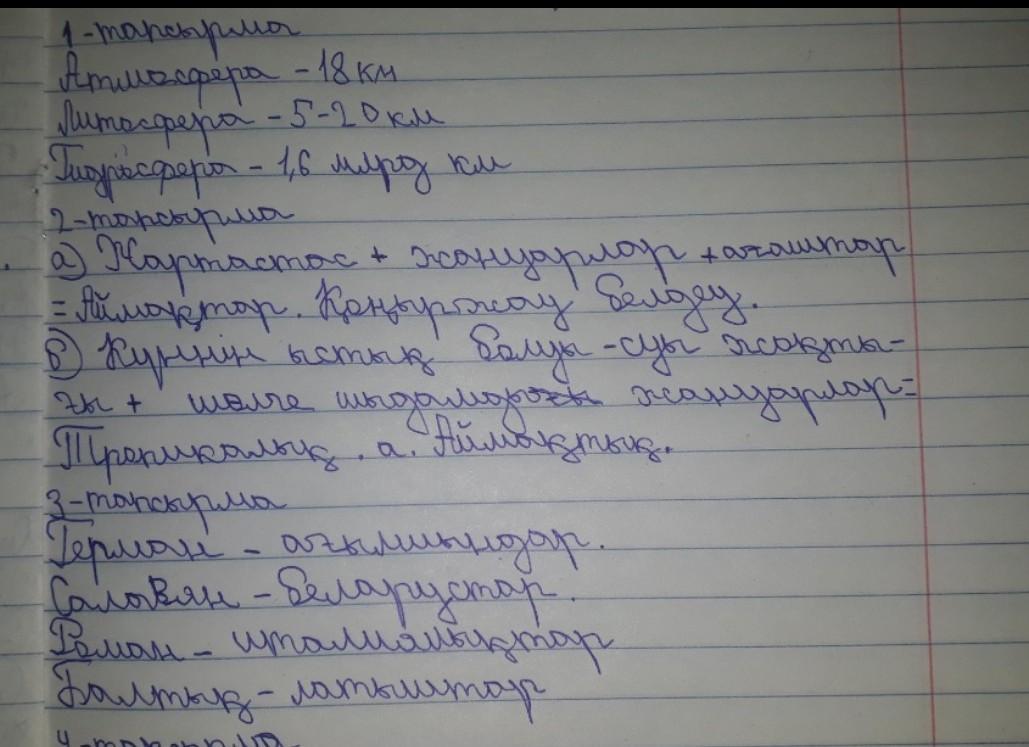 1-тапсырма
Атмосфера - 18 км
Литосфера - 5-20 км
Гидросфера - 1,6 млрд км
2-тапсырма
а) Жартастас + жануарлар + ағаштар
= Аймақтар. Қоңыржау белдеу.
б) Күннің ыстық болуы - суы жақты-
ғы + шөлге шыдамды жануарлар=
Тропикалық. а. Аймақтық.
3-тапсырма
Герман - ағылшындар.
Саловян - беларустар.
Роман - италиялықтар
Балтық - латыштар
4-тапсырма